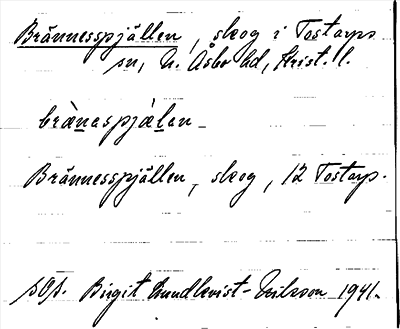 Brännesspjällen, skog i Tostarps
sn, N. Åsbo hd, Krist. l.
brànaspjælen
Brännesspjällen, skog, 12 Tostarp.
Birgit Lundkvist-Nilsson 1941.